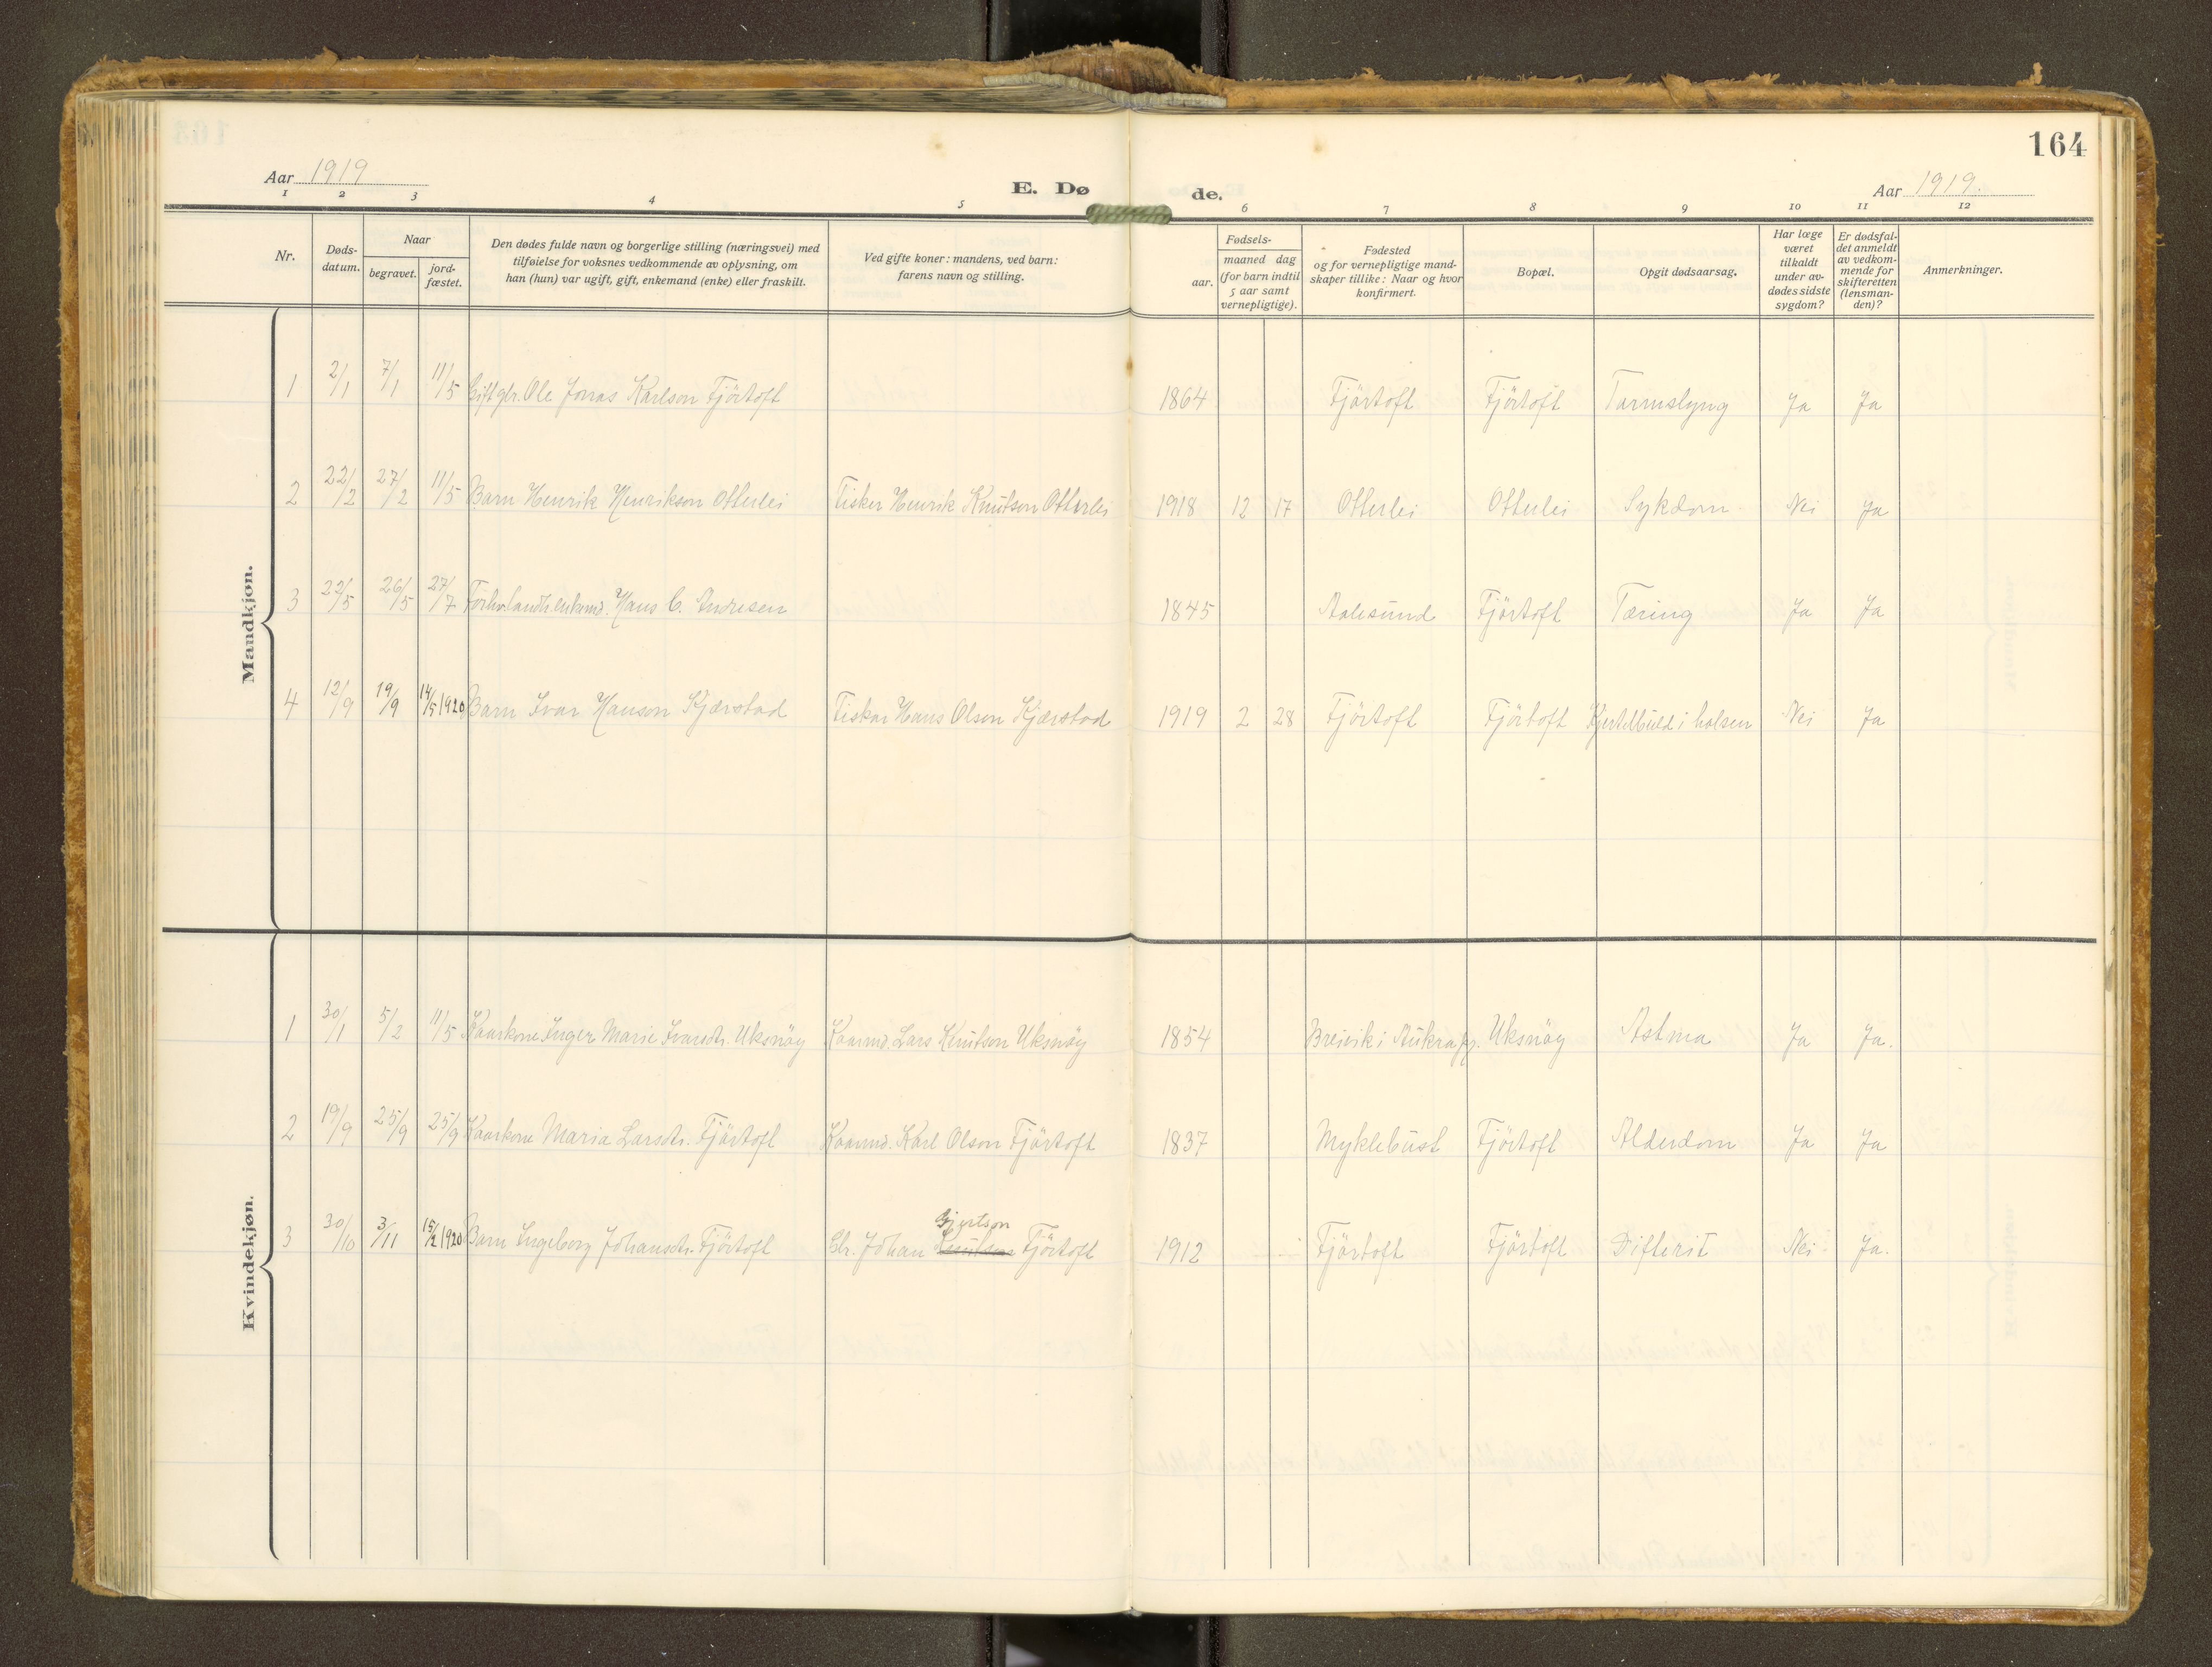 164
Aar 1919
E. Dø
de.
Aar 1919.
1 2 3 4 5 6 7 8 9 10 11 12
Nr. | Døds-datum. | Naar begravet. | jord-fæstet. | Den dødes fulde navn og borgerlige stilling (næringsvei) med tilføielse for voksnes vedkommende av oplysning, om han (hun) var ugift, gift, enkemand (enke) eller fraskilt. | Ved gifte koner: mandens, ved barn: farens navn og stilling. | Fødsels- aar. | maaned dag (for barn indtil 5 aar samt vernepligtige). | Fødested og for vernepligtige mand-skaper tillike: Naar og hvor konfirmert. | Bopæl. | Opgit dødsaarsag. | Har læge været tilkaldt under av-dødes sidste sygdom? | Er dødsfal-det anmeldt av vedkom-mende for skifteretten (lensman-den)? | Anmerkninger.
Mandkjøn.
1 2/1 7/1 11/5 Gift gbr. Ole Jonas Karlson Fjörtoft 1864 Fjörtoft Fjörtoft Tarmslyng Ja Ja
2 22/2 27/2 11/5 Barn Henrik Henrikson Otterlei Fisker Henrik Knutson Otterlei 1918 12 17 Otterlei Otterlei Sykdom Nei Ja
3 22/5 26/5 27/7 Hans C. Andresen 1845 Aalesund Fjörtoft Tæring Ja Ja
4 12/9 19/9 14/5 1920 Barn Ivar Hanson Kjærstad Fisker Hans Olsen Kjærstad 1919 2 28 Fjörtoft Fjörtoft Kjertelbuld i halsen Nei Ja
Kvindekjøn.
1 30/1 5/2 11/5 Kaarkone Inger Marie Ivarsdtr. Uksnöy Kaarmd. Lars Knutson Uksnöy 1854 Breivik i Aukra pg. Uksnöy Astma Ja Ja.
2 19/9 25/9 25/9 Kaarkone Maria Larsdtr. Fjörtoft Kaarmd. Karl Olson Fjörtoft 1837 Myklebust Fjörtoft Alderdom Ja Ja
3 30/10 3/11 15/2 1920 Barn Ingeborg Johansdtr. Fjörtoft Gbr. Johan Knutson Gjertson Fjörtoft 1912 Fjörtoft Fjörtoft Difterit Nei Ja.